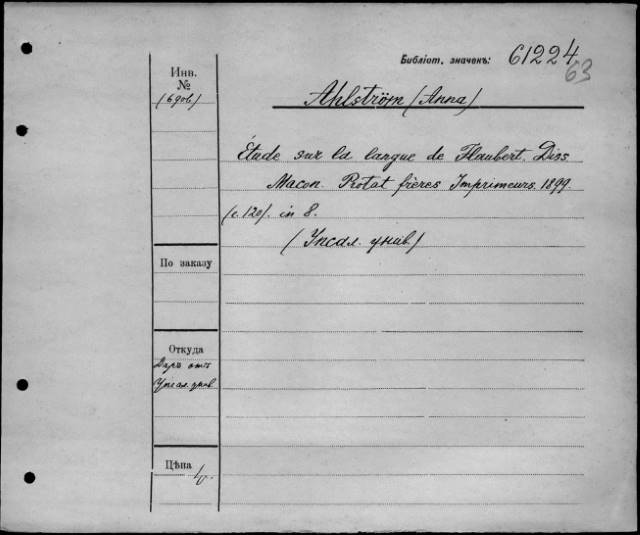 Библіот. значекъ: 61224
63
Инв.
№
Ahlström (Anna)
Étude sur la langue de Flaubert. Diss.
Macon. Protat frères Imprimeurs. 1899.
(с. 120). in 8.
(Упсал. унив.)
По заказу
Откуда
Даръ отъ
Упсал. унив.
Цѣна